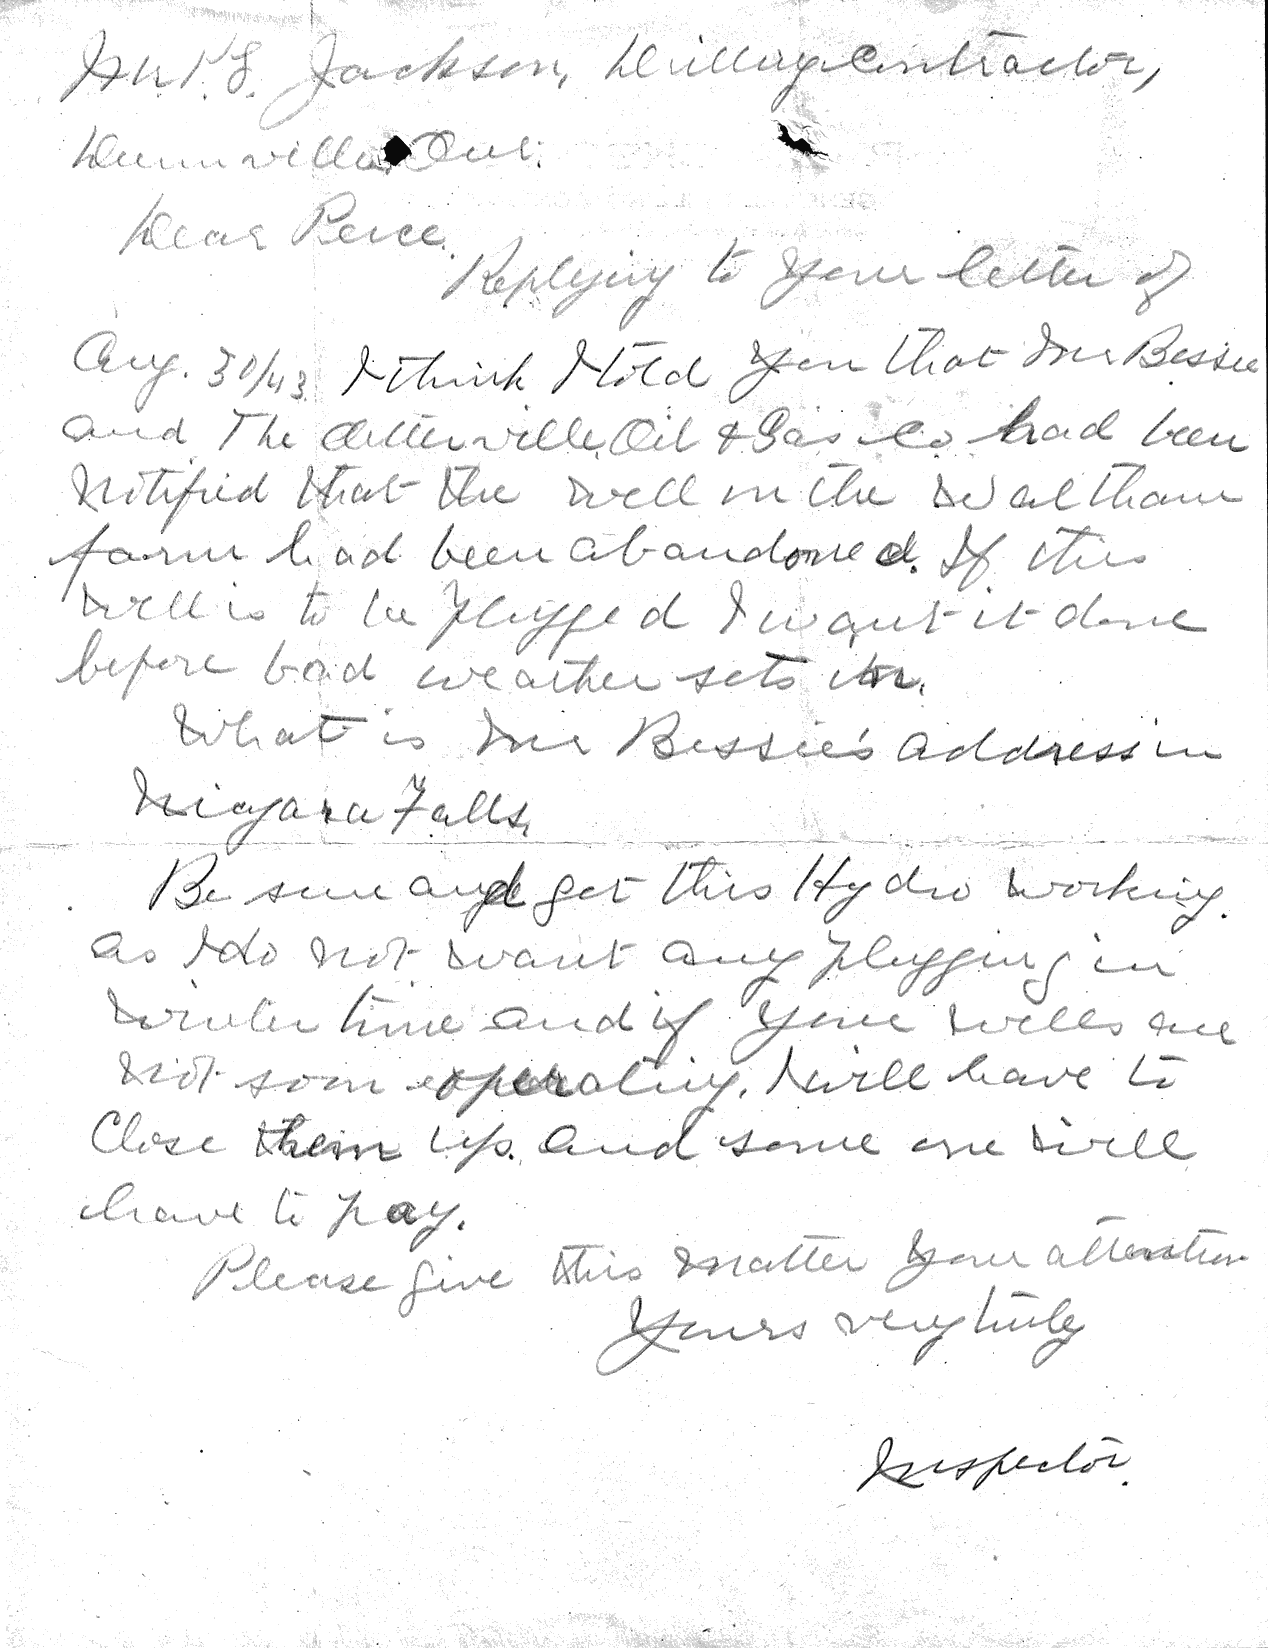 Mr. P. S. Jackson, Drilling Contractor,
Dunnville Ont.
Dear Perce.
Replying to your letter of
Aug. 30/43. I think I told you that Mr Bessie
and The Otterville Oil & Gas Co had been
notified that the well on the Waltham
farm had been abandoned. If this
well is to be plugged I want it done
before bad weather sets in.
What is Mr Bessie's address in
Niagara Falls,
Be sure and get this Hydro working.
as I do not want any plugging in
winter time and if your wells are
not soon operating. I will have to
Close them up. and some one will
have to pay.
Please give this matter your attention
Yours very truly
Inspector.